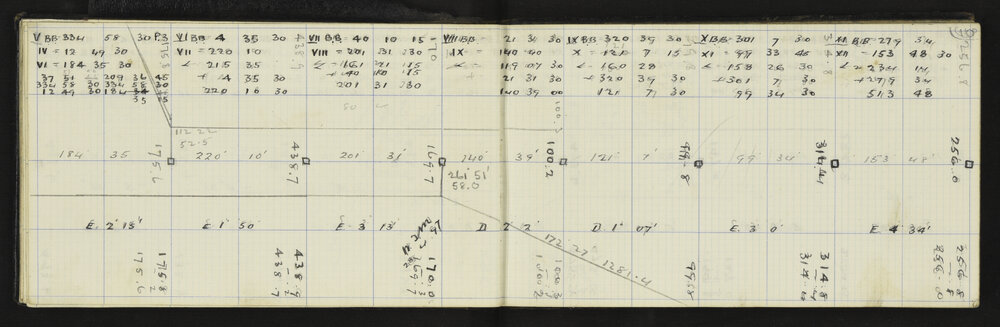 V BB 334 58 30 P.3
IV = 12 49 30
VI = 184 35 30
37 51 209 36 45
334 58 30 334 58 30
12 49 30 184 34
35 15
VI BB 4 35 30
VII = 220 10
∠ = 215 35
+ 4 35 30
220 10 30
438.9
VII BB 40 10 15
VIII = 201 31 30
∠ = 161 21 15
+ 40 10 15
201 31 30
VIII BB 21 31 30
IX = 140 40
∠ = 119 07 30
+ 21 31 30
140 39 00
IX BB 320 39 30
X = 121 7 15
∠ = 160 28
+ 320 39 30
121 7 30
X BB 301 7 30
XI = 99 33 45
∠ = 158 26 30
+ 301 7 30
99 34 30
XI BB 279 34
XII = 153 48 30
∠ = 234 14
+ 279 34
513 48
256.8
112.22
52.5
100.3
184 35
175.6
220' 10'
438.7
201 31'
169.7
140' 39'
261° 51'
58.0
100.2
121 7'
99 34'
314.4
153 48'
256.0
E. 2° 13'
E 1° 50'
E 3° 13'
D 2° 2'
D 1° 07'
E. 3° 0'
E 4° 34'
172.27 1281.4
175.8
2
175.6
438.9
2
438.7
170.0
3
169.7
100.3
1
100.2
314.8
314.4
256.8
8
256.00